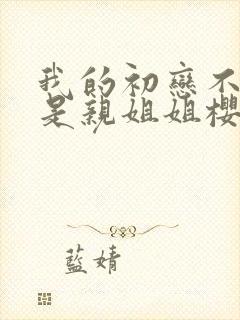 我的初戀不
是親姐姐櫻
藍婧